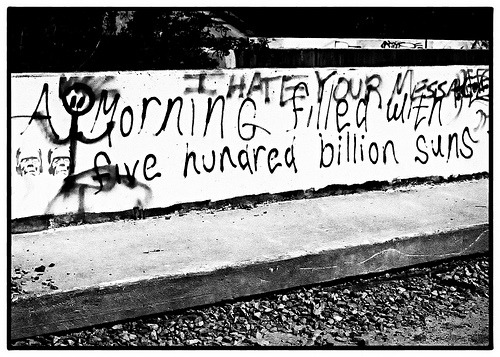 I HATE YOUR MESSAGE
A Morning filled with
five hundred billion suns